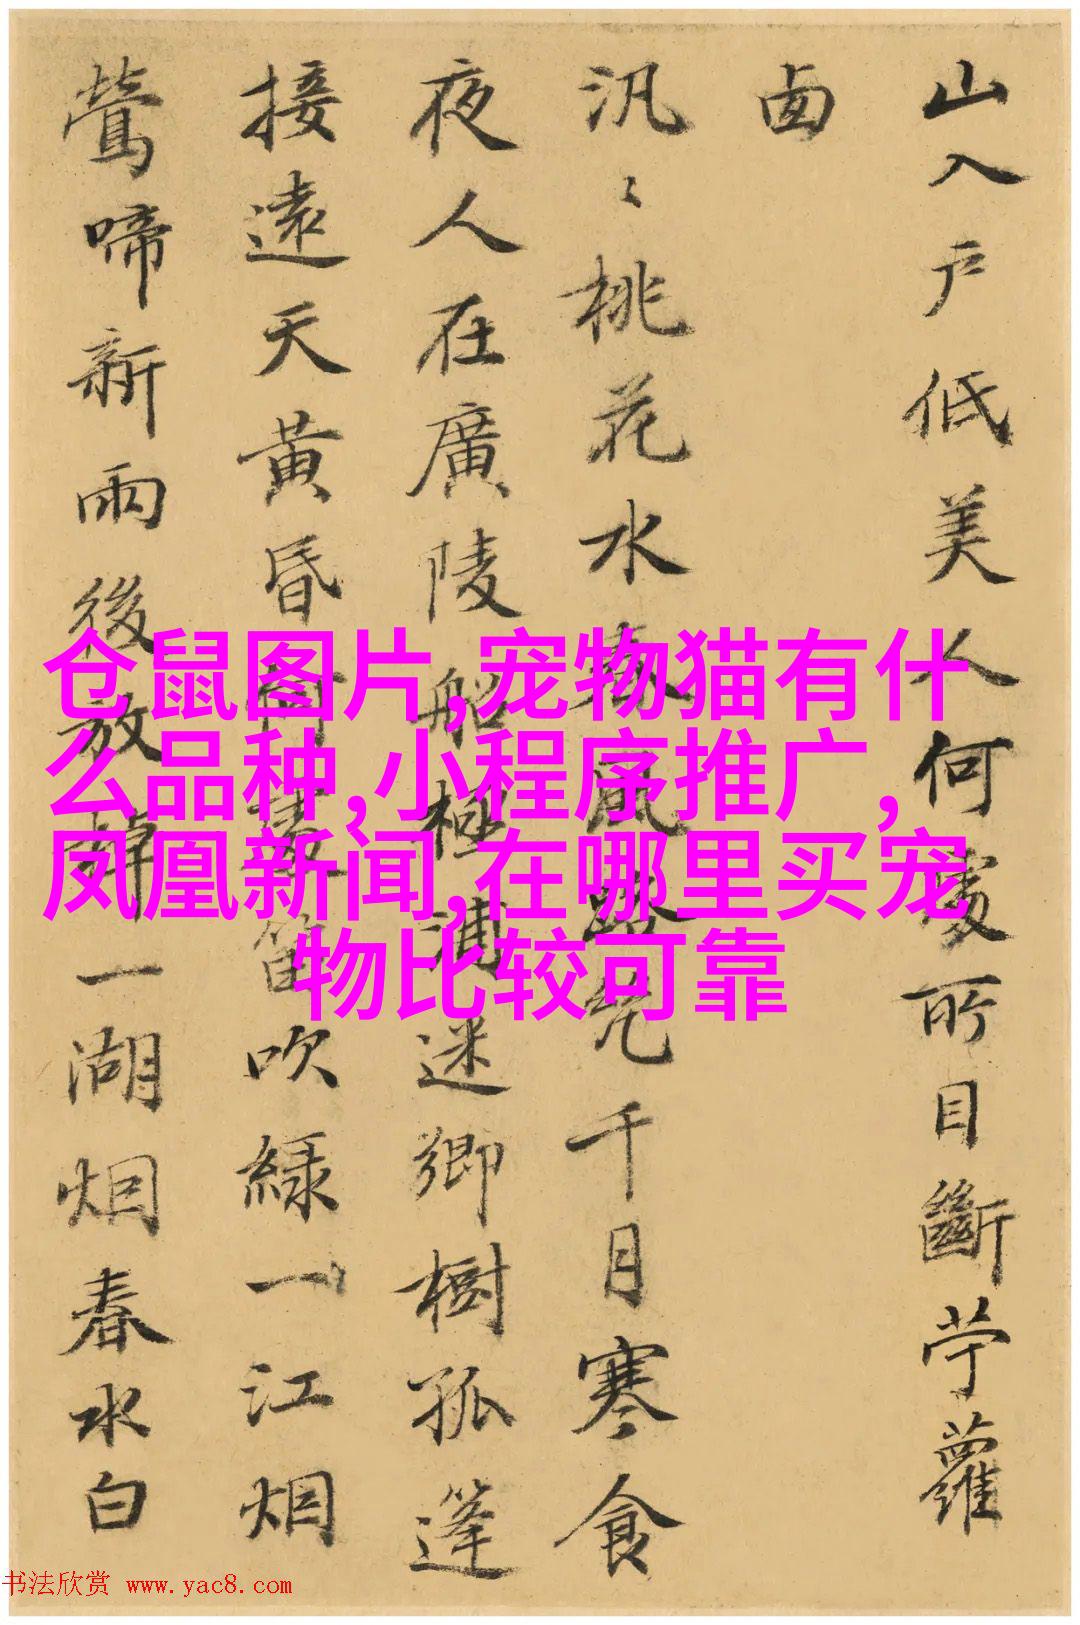 山入户低美人何處所目斷苧蘿
汎〻桃花水春風路千月寒食
夜人在廣陵船極浦迷鄉樹孤篷
接遠天黃昏笛吹綠一江烟
鶯啼新雨後放棹一湖烟春水白
仓鼠图片,宠物猫有什
么品种,小程序推广,
凤凰新闻,在哪里买宠
物比较可靠
书法欣赏 www.yac8.com